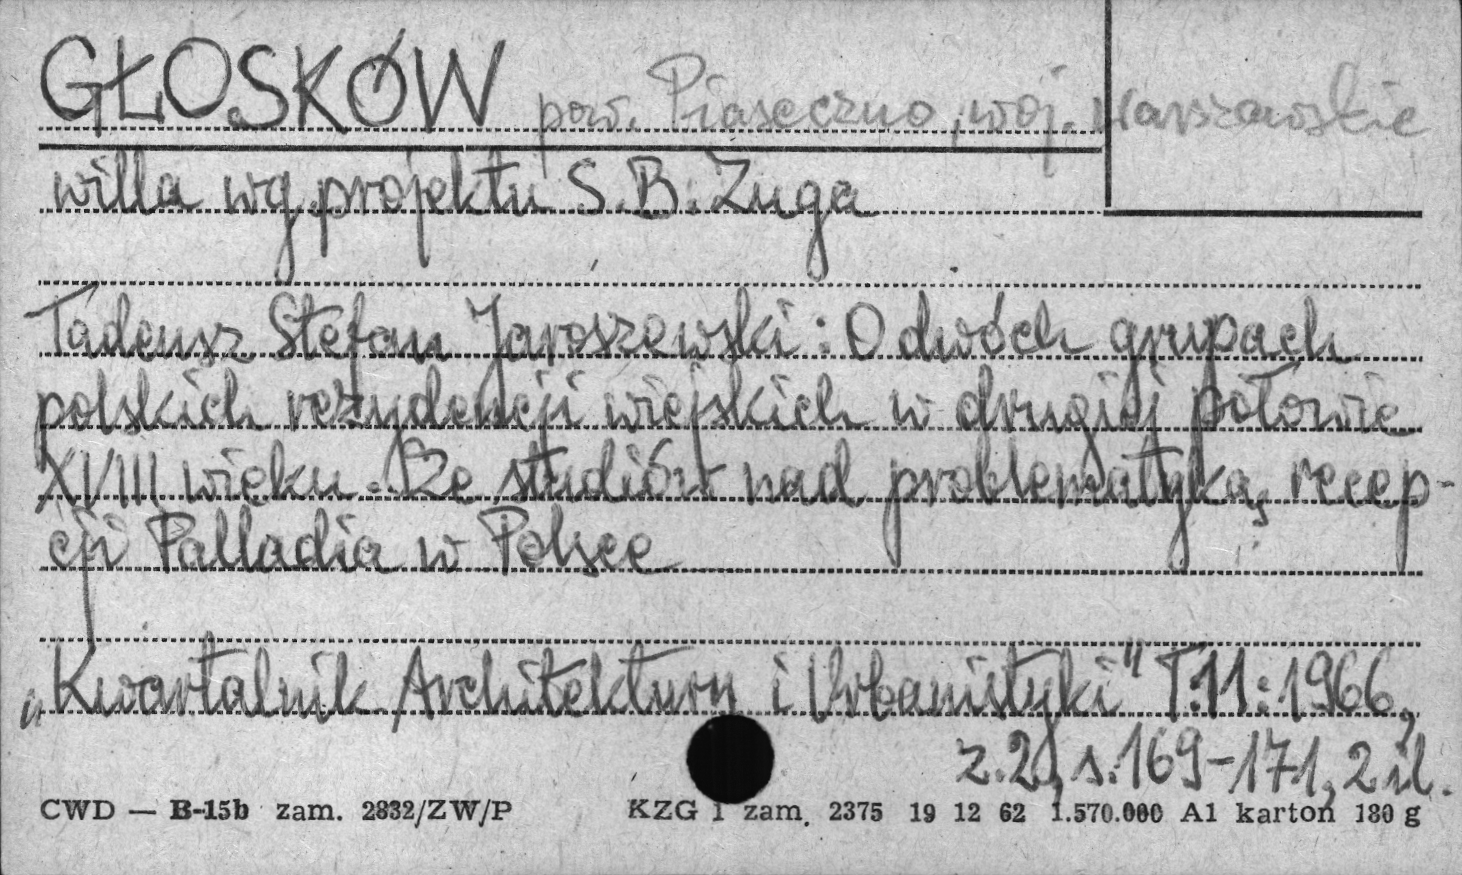 GŁOSKÓW pow. Piaseczno, woj. warszawskie
willa wg. projektu S. B. Zuga
Tadeusz Stefan Jaroszewski: O dwóch grupach
polskich rezydencji wiejskich w drugiej połowie
XVIII wieku. Ze studiów nad problematyką recep-
cji Palladia w Polsce
„Kwartalnik Architektury i Urbanistyki" T.11:1966,
z.2, s.169-171, 2 il.
CWD — B-15b zam. 2832/ZW/P KZG 1 zam. 2375 19 12 62 1.570.000 A1 karton 180 g